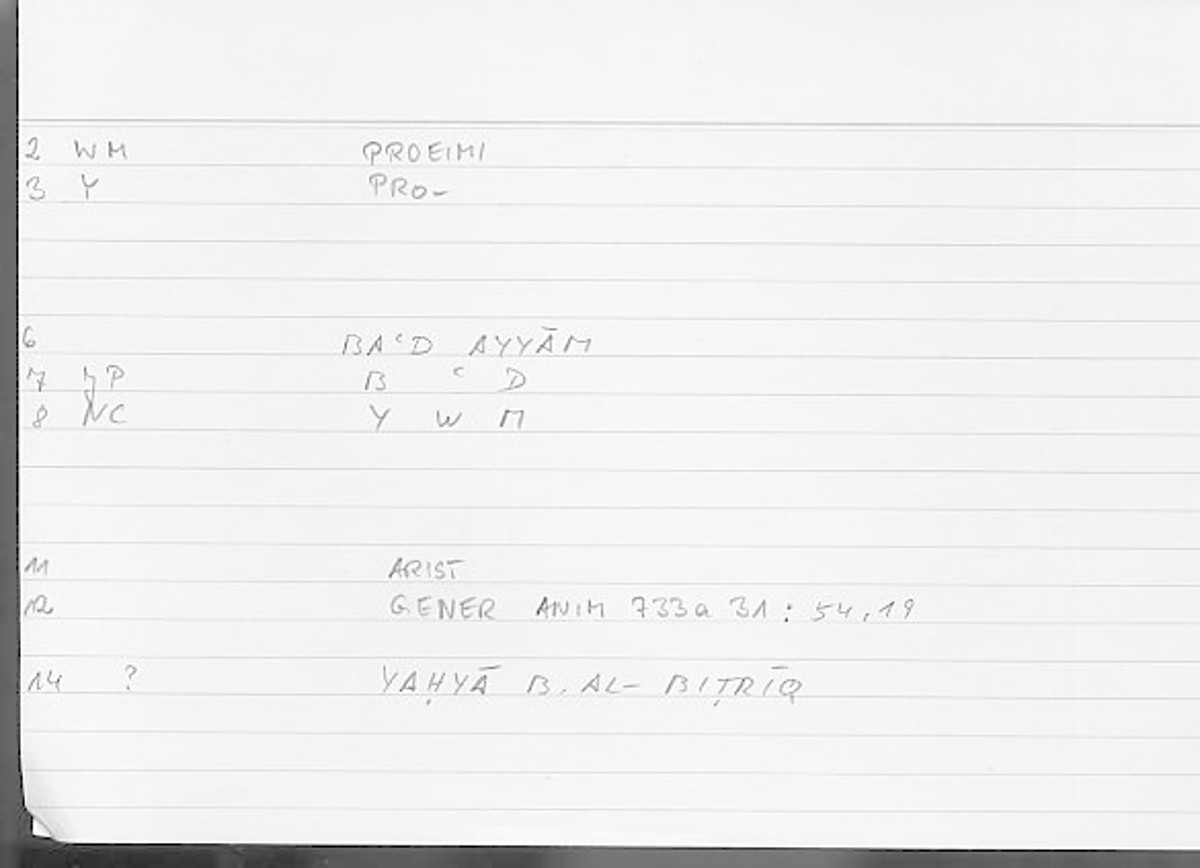 2 WM PROEIMI
3 Y PRO-
6 BAʿD AYYĀM
7 ȜP B ʿ D
8 NC Y W M
11 ARIST
12 GENER ANIM 733a 31 : 54,19
14 ? YAḤYĀ B. AL- BIṬRĪQ